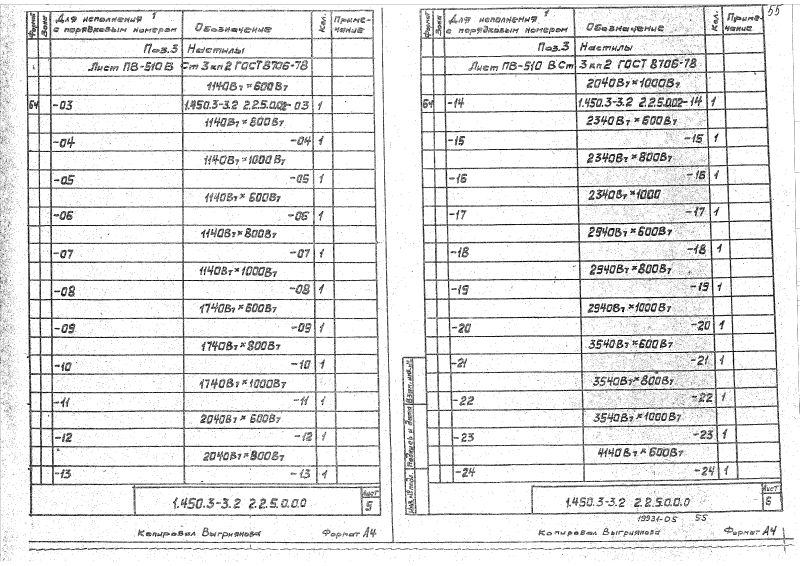 Формат Зона Для исполнения 1 с порядковым номером Обозначение Кол. Приме-чание
Поз.3 Настилы
Лист ПВ-510 В Ст 3 кп2 ГОСТ 8706-78
1140Вт×600Вт
БЧ -03 1.450.3-3.2 2.2.5.0.02-03 1
1140Вт×800Вт
-04 -04 1
1140Вт×1000Вт
-05 -05 1
1140Вт×600Вт
-06 -06 1
1140Вт×800Вт
-07 -07 1
1140Вт×1000Вт
-08 -08 1
1740Вт×600Вт
-09 -09 1
1740Вт×800Вт
-10 -10 1
1740Вт×1000Вт
-11 -11 1
2040Вт×600Вт
-12 -12 1
2040Вт×800Вт
-13 -13 1
1.450.3-3.2 2.2.5.0.0.0 Лист 5
Копировал Выгриянова Формат А4
55
Формат Зона Для исполнения 1 с порядковым номером Обозначение Кол. Приме-чание
Поз.3 Настилы
Лист ПВ-510 В Ст 3 кп2 ГОСТ 8706-78
2040Вт×1000Вт
БЧ -14 1.450.3-3.2 2.2.5.0.02-14 1
2340Вт×600Вт
-15 -15 1
2340Вт×800Вт
-16 -16 1
2340Вт×1000
-17 -17 1
2940Вт×600Вт
-18 -18 1
2940Вт×800Вт
-19 -19 1
2940Вт×1000Вт
-20 -20 1
3540Вт×600Вт
-21 -21 1
3540Вт×800Вт
-22 -22 1
3540Вт×1000Вт
-23 -23 1
4140Вт×600Вт
-24 -24 1
Инв.№подл. Подпись и дата Взам.инв.№
1.450.3-3.2 2.2.5.0.0.0 Лист 6
19931-05 55
Копировал Выгриянова Формат А4